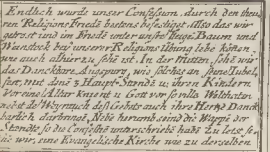 Endlich wurde unser Confession, durch den theu-
ren Religions Friede bestens befestiget also das wir
getrost und im Friede unter unser Baum und
Weinstock bey unserer Religions Übung lebe können,
wie auch alhier zu sehe ist. In der Mitten, sehe wir
das Danckbare Augspurg, wie solches an seine Jubel,
fest, mit dene 3 Haupt-Stände u: ihren Kindern.
Vor eine Altar kniet u: Gott vor so viele Wolthaten
nebst de Weyrauch des Gebets auch ihre Hertze Danck
barlich darbringet, Nebe herumb seind die Wappe der
Stände, so die Confession unterschriebe habe zu letzt se-
he wir, eine Evangelische Kirche wie zu derselben